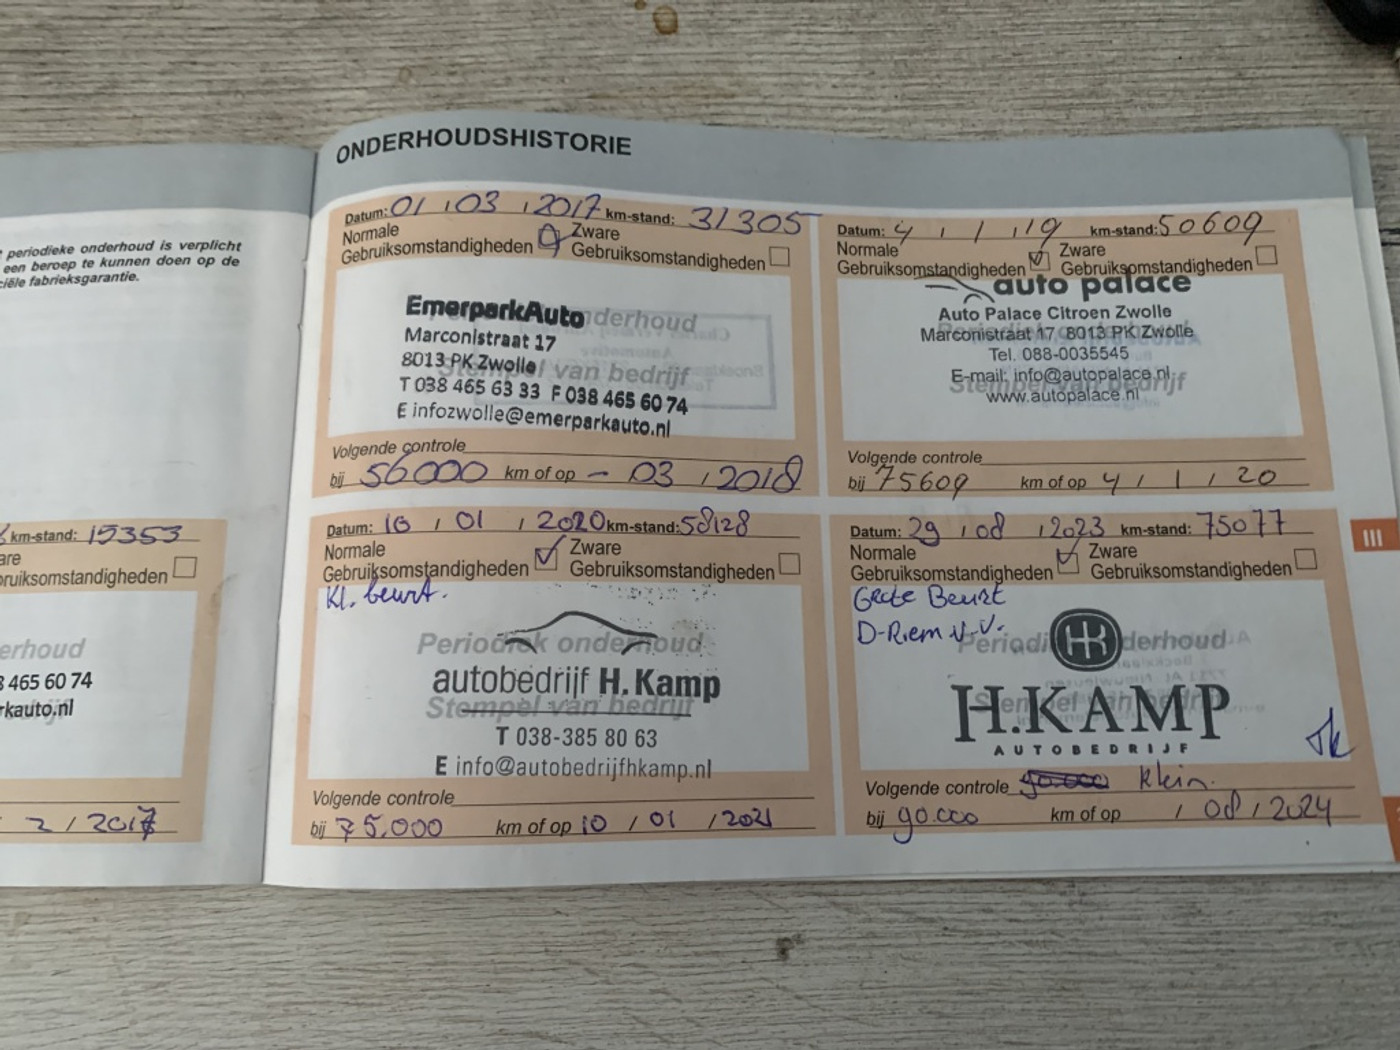 t periodieke onderhoud is verplicht
een beroep te kunnen doen op de
ciële fabrieksgarantie.
km-stand: 15353
are
bruiksomstandigheden
erhoud
465 60 74
rkauto.nl
2 / 2017
ONDERHOUDSHISTORIE
Datum: 01 / 03 / 2017 km-stand: 31305
Normale
Gebruiksomstandigheden
Zware
Gebruiksomstandigheden
Periodiek onderhoud
Stempel van bedrijf
EmerparkAuto
Marconistraat 17
8013 PK Zwolle
T 038 465 63 33 F 038 465 60 74
E infozwolle@emerparkauto.nl
Volgende controle
bij 56000 km of op - 03 / 2018
Datum: 4 / 1 / 19 km-stand: 50609
Normale
Gebruiksomstandigheden
Zware
Gebruiksomstandigheden
auto palace
Auto Palace Citroen Zwolle
Marconistraat 17, 8013 PK Zwolle
Tel. 088-0035545
E-mail: info@autopalace.nl
Stempel van bedrijf
www.autopalace.nl
Volgende controle
bij 75609 km of op 4 / 1 / 20
Datum: 10 / 01 / 2020 km-stand: 58128
Normale
Gebruiksomstandigheden
Zware
Gebruiksomstandigheden
Kl. beurt.
Periodiek onderhoud
autobedrijf H. Kamp
Stempel van bedrijf
T 038-385 80 63
E info@autobedrijfhkamp.nl
Volgende controle
bij 75.000 km of op 10 / 01 / 2021
Datum: 29 / 08 / 2023 km-stand: 75077
Normale
Gebruiksomstandigheden
Zware
Gebruiksomstandigheden
Grote Beurt
D-Riem V.V.
Periodiek onderhoud
HK
Stempel van bedrijf
H.KAMP
AUTOBEDRIJF
Volgende controle 90.000 Klein.
bij 90.000 km of op / 08 / 2024
III